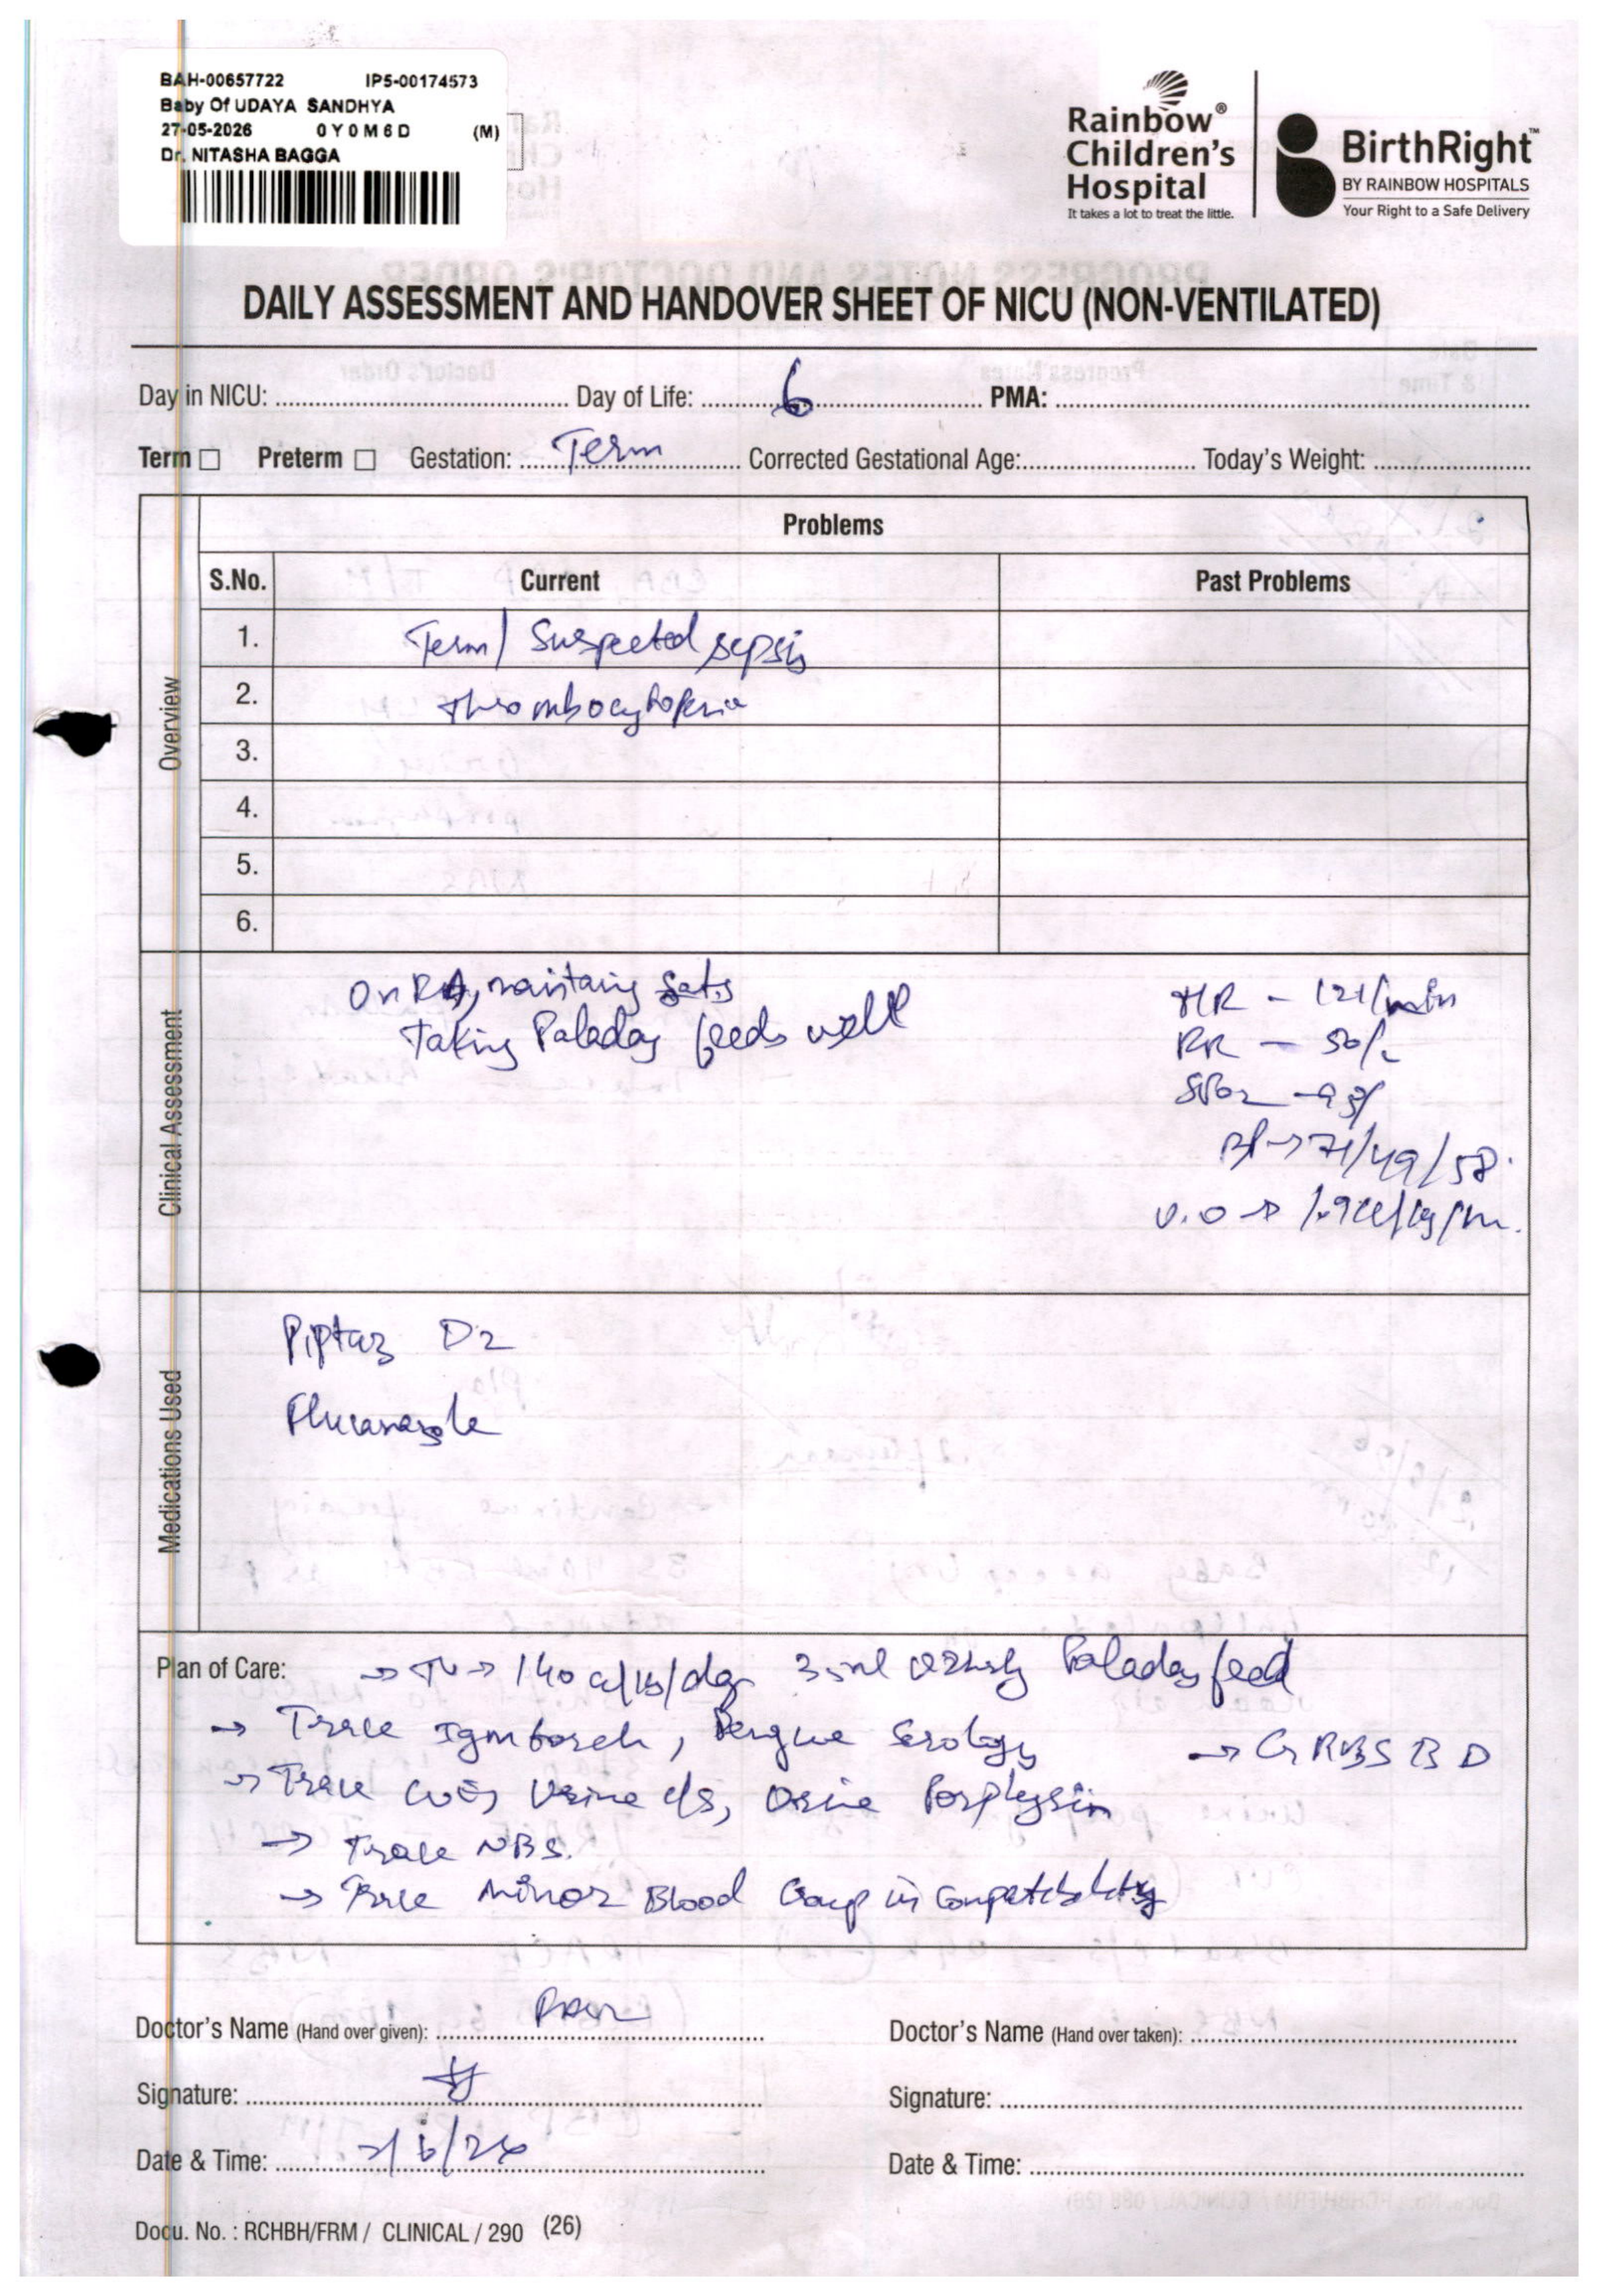 BAH-00657722 IP5-00174573
Baby Of UDAYA SANDHYA
27-05-2026 0 Y 0 M 6 D (M)
Dr. NITASHA BAGGA
Rainbow®
Children's
Hospital
It takes a lot to treat the little.
BirthRight™
BY RAINBOW HOSPITALS
Your Right to a Safe Delivery
DAILY ASSESSMENT AND HANDOVER SHEET OF NICU (NON-VENTILATED)
Day in NICU: Day of Life: 6 PMA:
Term ☐ Preterm ☐ Gestation: Term Corrected Gestational Age: Today's Weight:
Overview
Problems
S.No. Current Past Problems
1. Term/ Suspected sepsis
2. Thrombocytopenia
3.
4.
5.
6.
Clinical Assessment
On RA, maintaing Sats
Taking Paladay feeds well
HR - 121/min
RR - 50/
SPO2 -
BP → 71/49/58.
U.O → 1.9
Medications Used
Piptaz D2
Fluconazole
Plan of Care: → → 140 cc/kg/day 35ml Paladay feed
→ Trace Igm torch, Dengue Serology → GRBS BD
→ Trace Urine c/s, Urine Porphyrin
→ Trace NBS.
→ Trace Minor Blood Group in Compatability
Doctor's Name (Hand over given):
Doctor's Name (Hand over taken):
Signature:
Signature:
Date & Time: 2/6/26
Date & Time:
Docu. No. : RCHBH/FRM / CLINICAL / 290 (26)